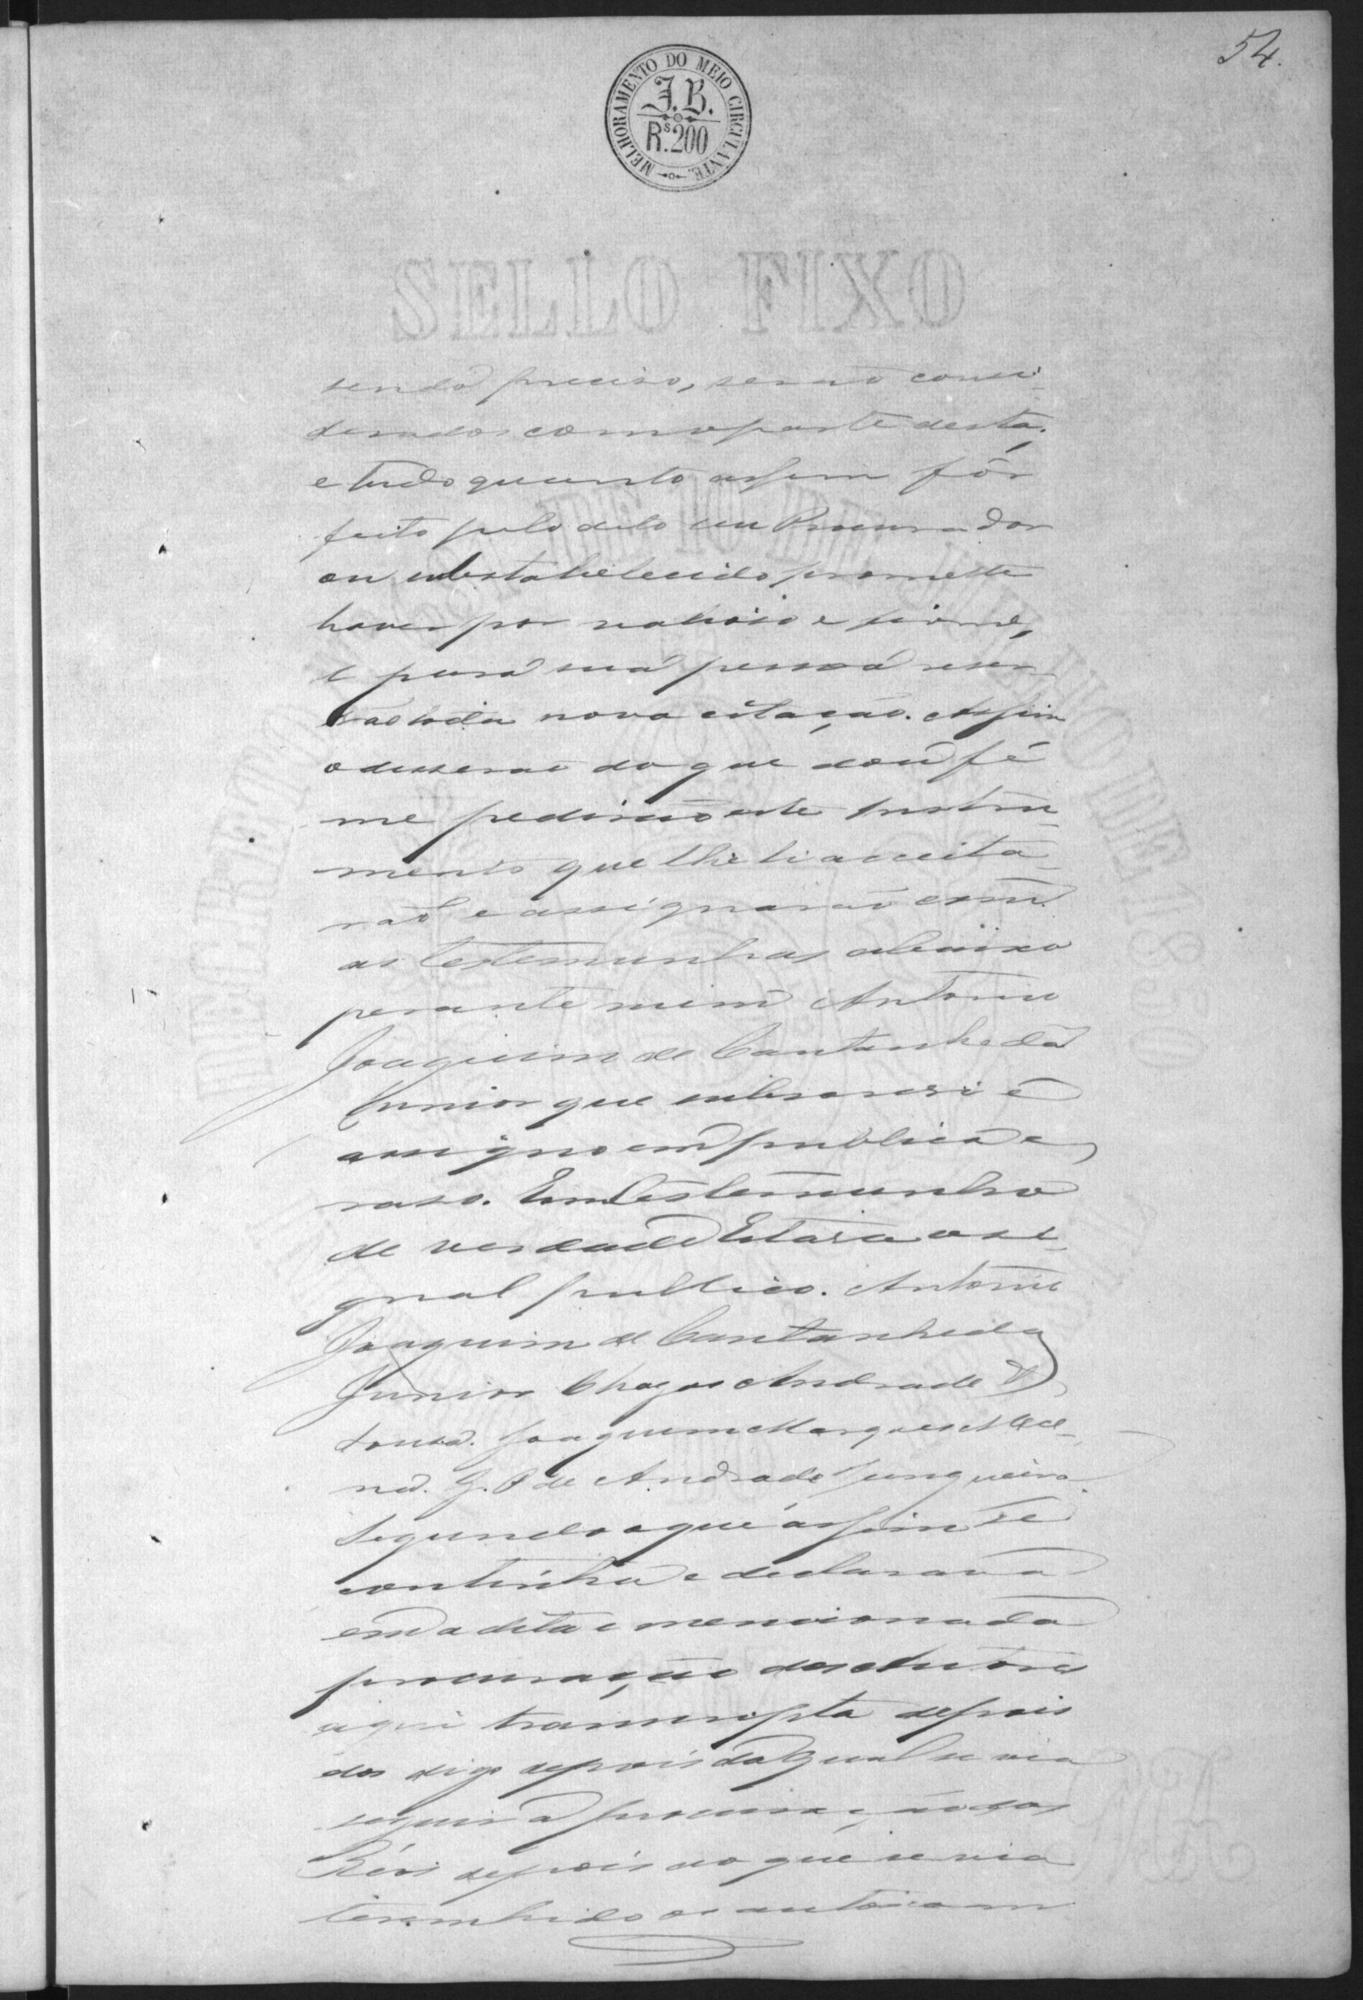 54.
MELHORAMENTO DO MEIO CIRCULANTE.
J.B.
Rs. 200
SELLO FIXO
DECRETO Nº 681 DE 10 DE JULHO DE 1850
sendo preciso, serão consi-
derados como parte desta;
e tudo quanto assim fôr
feito pelo dito seu Procurador
ou substabelecido promette
haver por valioso e firme,
e para sua pessoa reser
vão toda nova citação. Assim
o disserão do que dou fé
me pedirão este Instru-
mento que lhe li aceita-
rão e assignarão com
as testemunhas abaixo
perante mim Antonio
Joaquim de Cantanheda
Junior que subscrevi e
assigno em publico e
raso. Em testemunho
de verdade Estava o si-
gnal publico. Antonio
Joaquim de Cantanheda
Junior Chagas Andrade &
Souza. Joaquim Marques
de Andrade Junqueira
Segundo o que assim se
continha e declarava
em a dita e mencionada
procuração dos Autores
aqui transcripta depois
dos digo depois da qual se via
seguir a procuração dos
Réos depois do que se via
terem sido os autos com